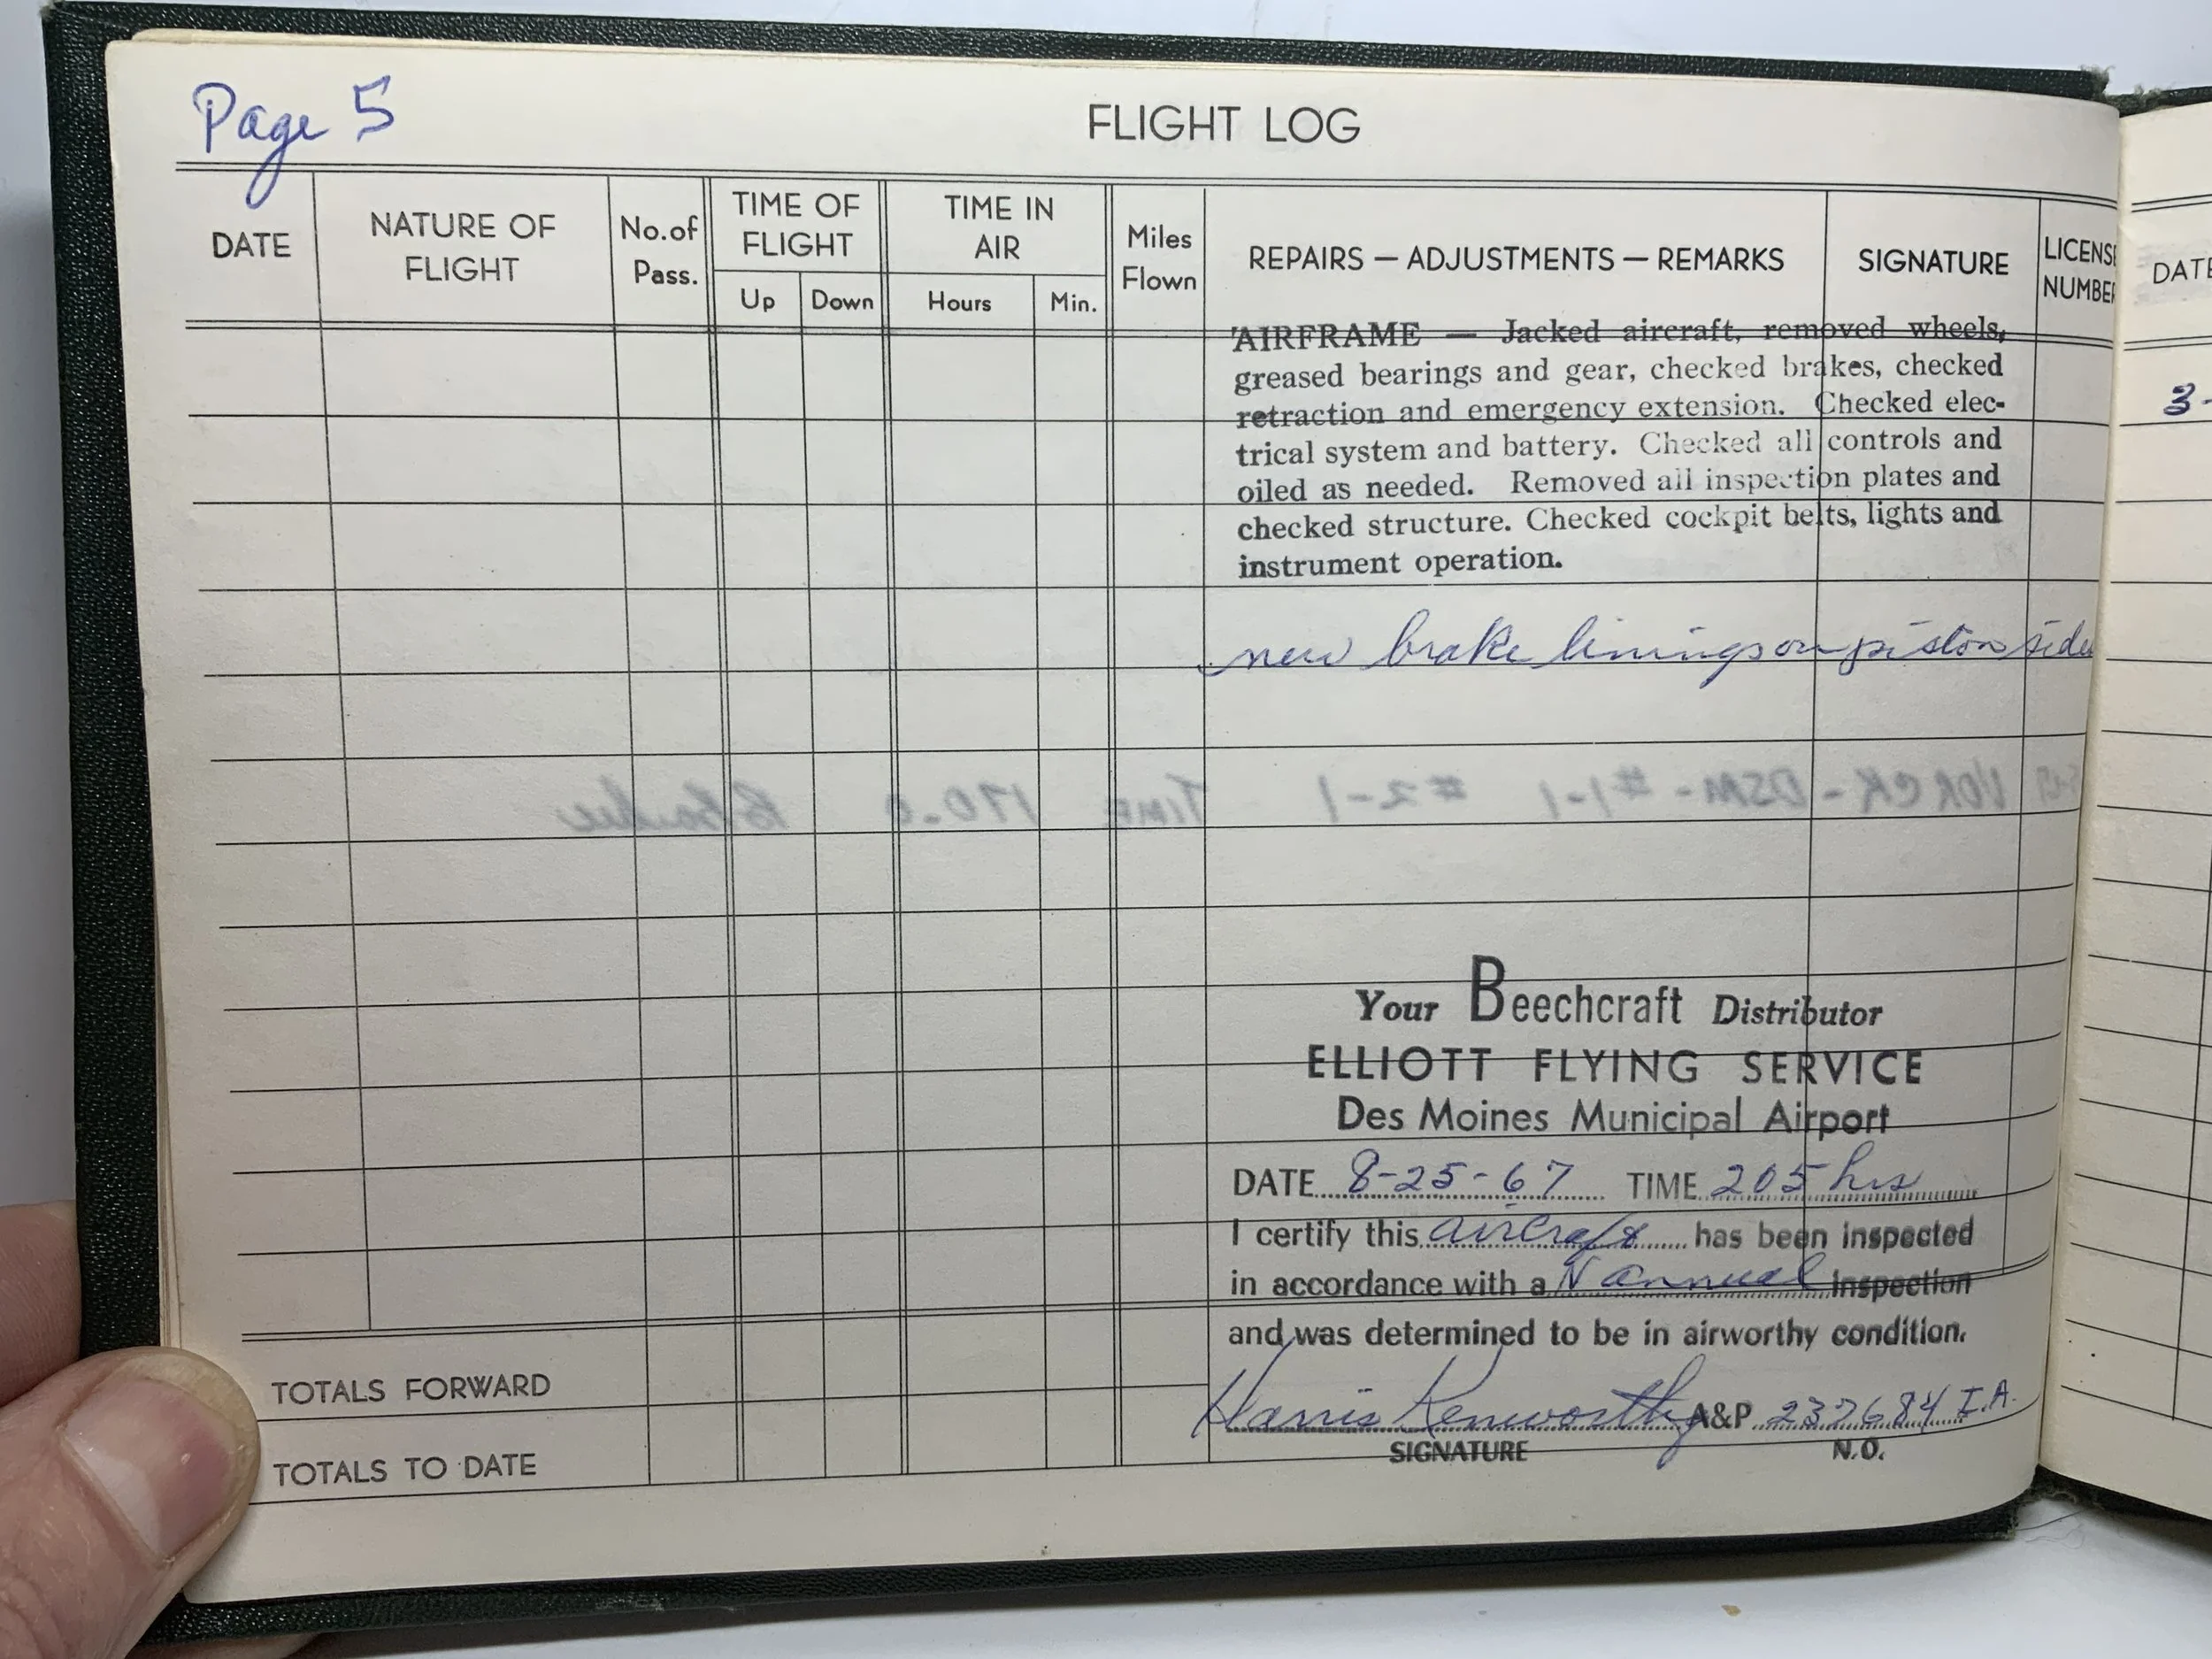 Page 5
FLIGHT LOG
DATE
NATURE OF
FLIGHT
No.of
Pass.
TIME OF
FLIGHT
Up
Down
TIME IN
AIR
Hours
Min.
Miles
Flown
REPAIRS — ADJUSTMENTS — REMARKS
SIGNATURE
LICENSE
NUMBER
AIRFRAME — Jacked aircraft, removed wheels,
greased bearings and gear, checked brakes, checked
retraction and emergency extension. Checked elec-
trical system and battery. Checked all controls and
oiled as needed. Removed all inspection plates and
checked structure. Checked cockpit belts, lights and
instrument operation.
new brake linings on piston side
VOR CK - DSM - #1-1 #2-1 TIME 170.0
Your Beechcraft Distributor
ELLIOTT FLYING SERVICE
Des Moines Municipal Airport
DATE 8-25-67 TIME 205 hrs
I certify this aircraft has been inspected
in accordance with a N annual inspection
and was determined to be in airworthy condition.
Harris Kenworthy A&P 237684 I.A.
SIGNATURE N.O.
TOTALS FORWARD
TOTALS TO DATE
DATE
3-